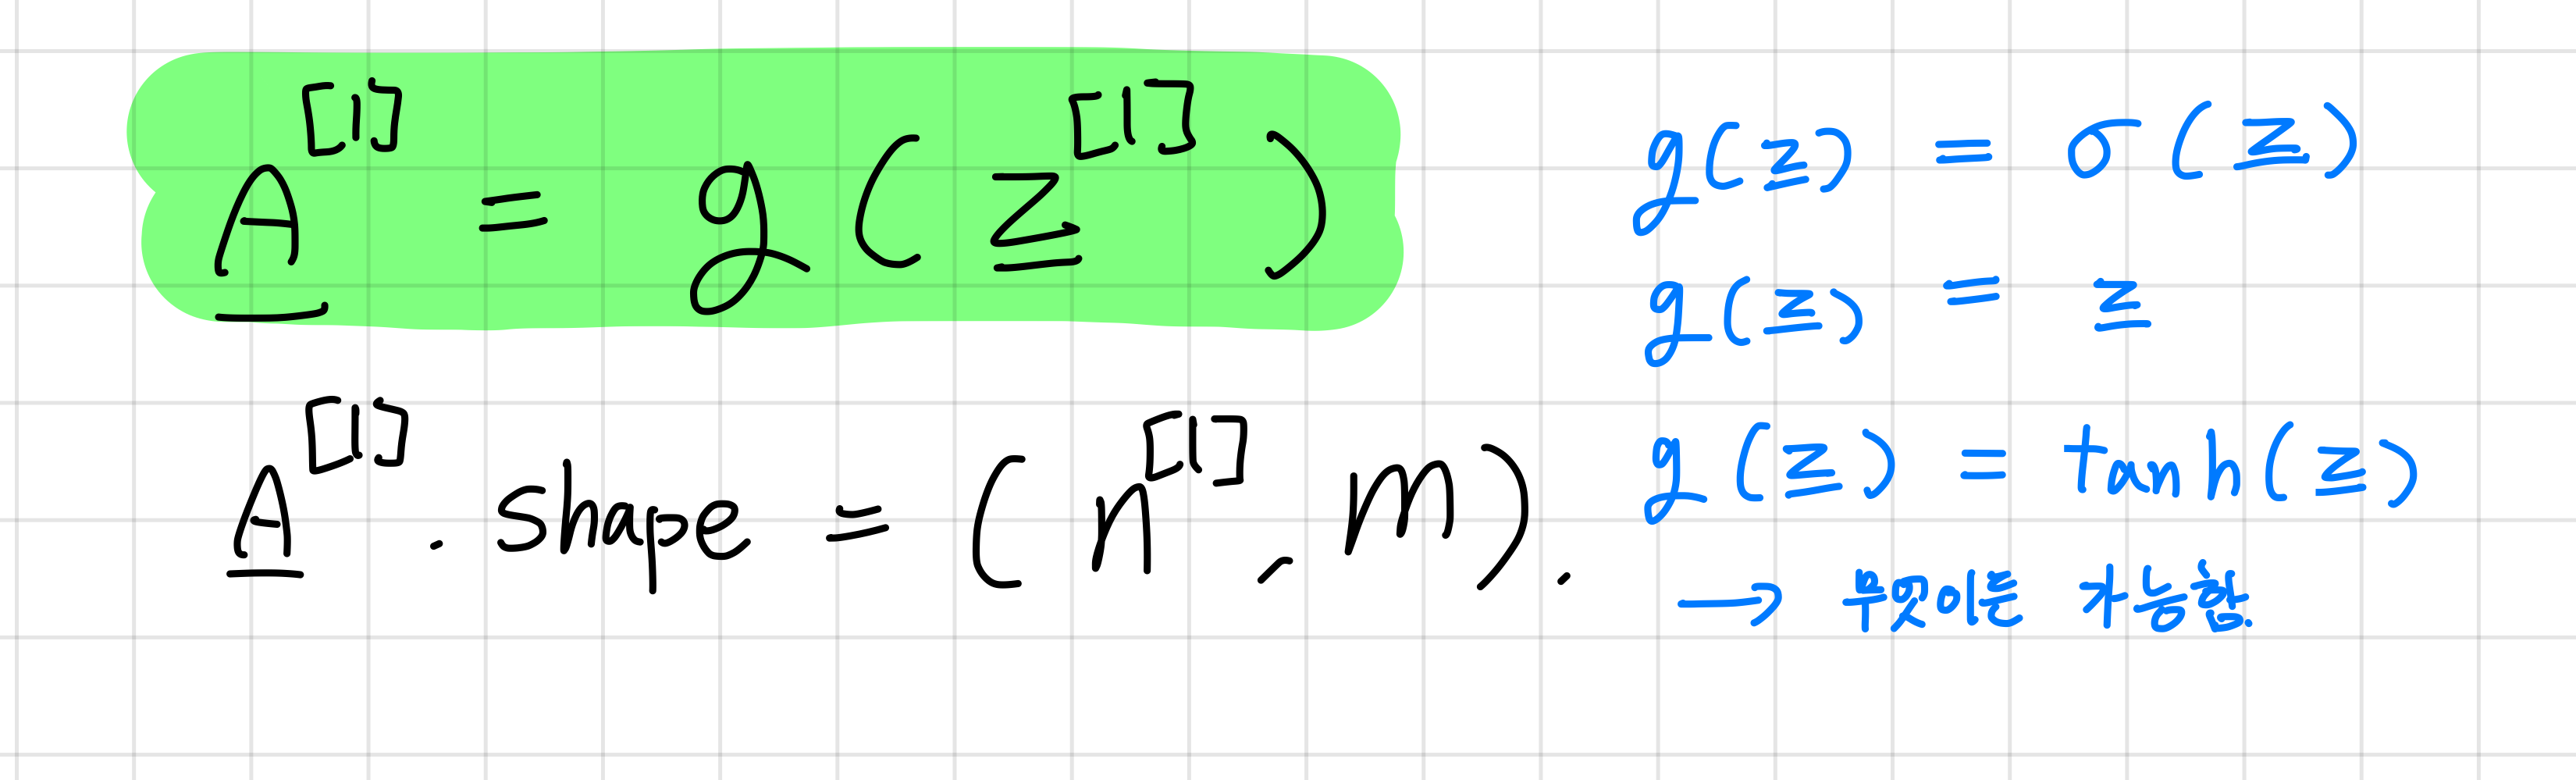 A^[1] = g(Z^[1])
A^[1].shape = (n^[1], m).
g(z) = σ(z)
g(z) = z
g(z) = tanh(z)
→ 무엇이든 가능함.